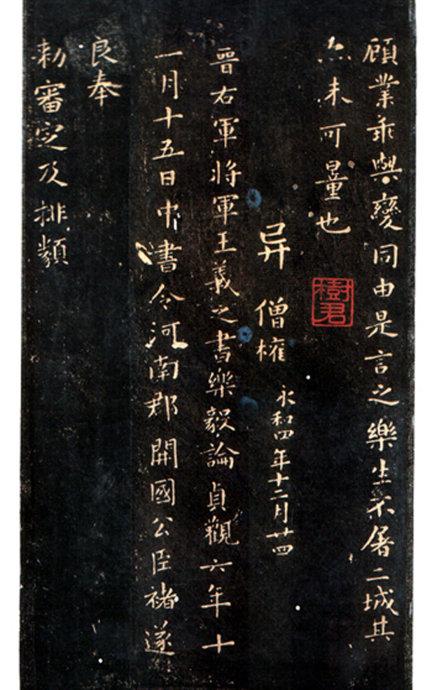 顧業乖與變同由是言之樂生不屠二城其
亦未可量也
异 僧權
永和四年十二月廿四
晉右軍將軍王羲之書樂毅論貞觀六年十
一月十五日中書令河南郡開國公臣褚遂
良奉
勑審定及排類
樹君